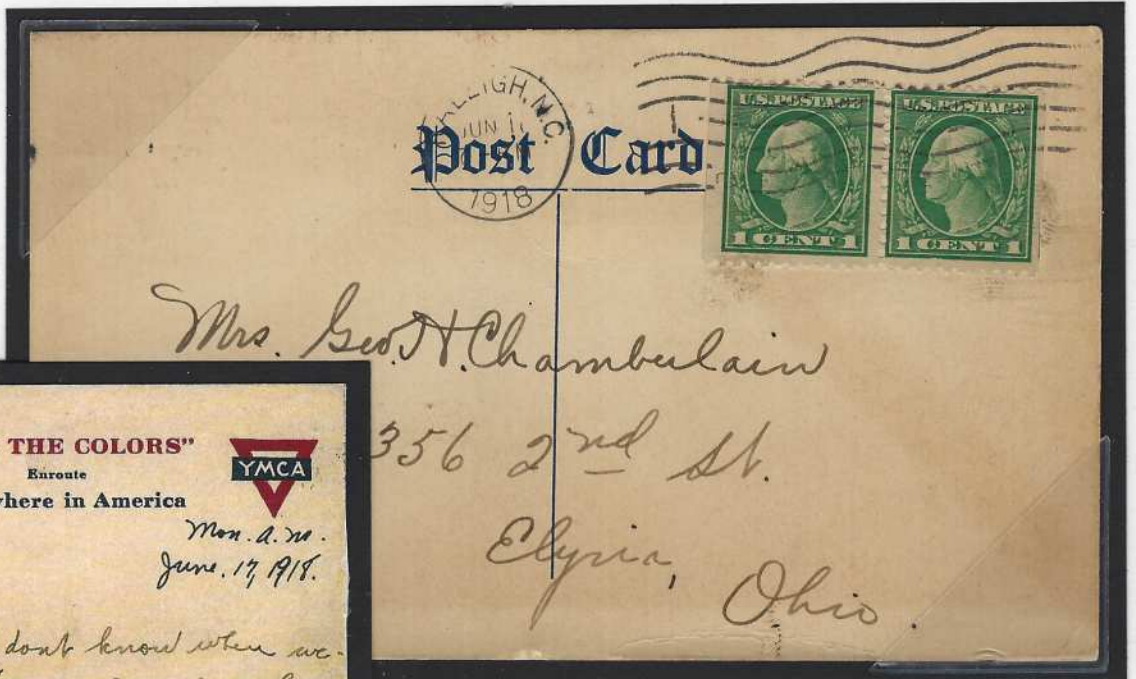 RALEIGH, N.C.
JUN 1
1918
Post Card
U.S. POSTAGE U.S. POSTAGE
1 CENT 1 1 CENT 1
Mrs. Geo. H. Chamberlain
356 2nd St.
Elyria,
Ohio.
THE COLORS"
Enroute
where in America
YMCA
Mon. a.m.
June. 17, 1918.
dont know when we-